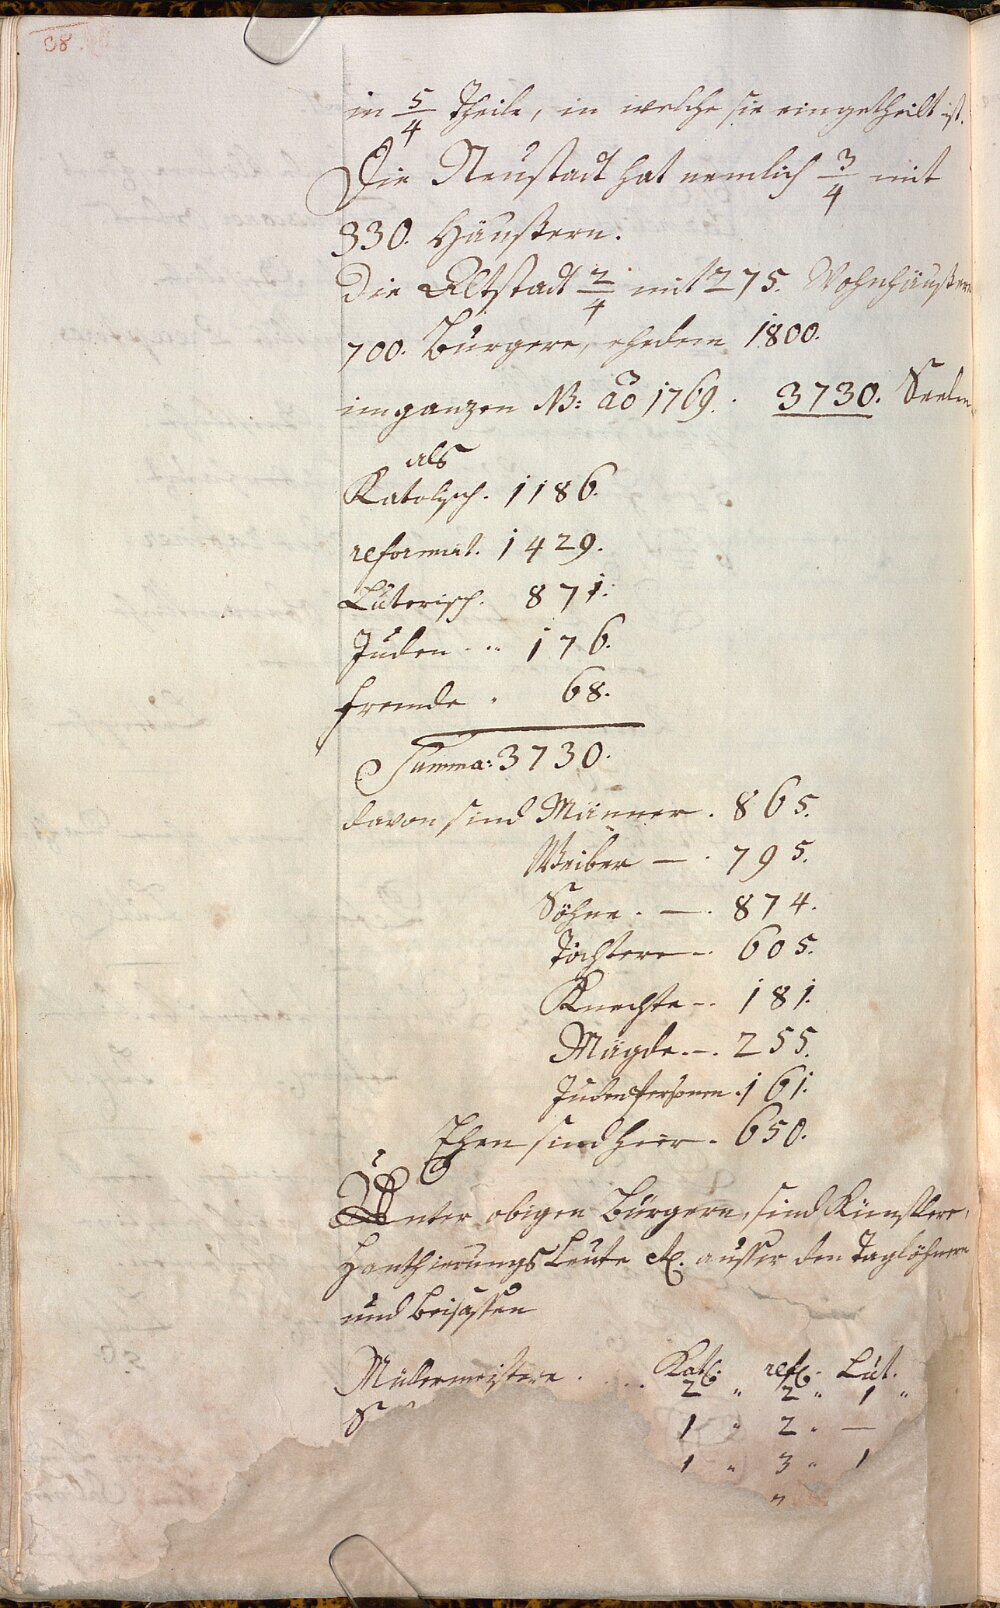 in 5/4 Theile, in welche sie eingetheilt ist.
Die Neustadt hat nemlich 3/4 mit
330. Häußern.
die Altstadt 2/4 mit 275. Wohnhäußern
700. Bürgere, ehedem 1800.
im ganzen NB: ao 1769. 3730. Seelen
als
Katolisch. 1186.
reformirt. 1429.
Luterisch. 871.
Juden 176.
fremde 68.
Summa: 3730.
davon sind Männer. 865.
Weiber — . 795.
Söhne. — . 874.
Töchtere — . 605.
Knechte — . 181.
Mägde. — . 255.
Juden Personen. 161.
Ehen sind hier. 650.
Unter obigen Bürgern, sind Künstlere,
Hanthierungs Leute etc. ausser den Taglöhnern
und Beisassen
Kat: ref: Lut.
Müllermeistere . . . 2 " 2 " 1 "
S 1 " 2 " —
1 " 3 " 1
"